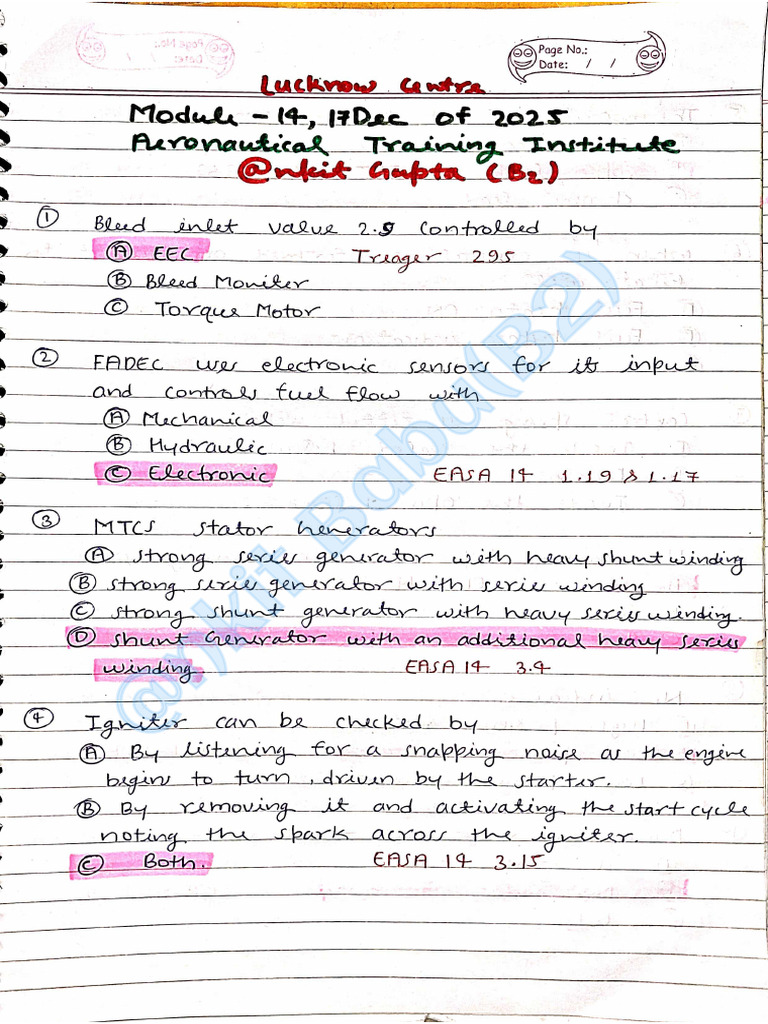 Page No.:
Date: / /
Lucknow Centre
Module - 14, 17 Dec of 2025
Aeronautical Training Institute
@nkit Gupta (B2)
① Bleed inlet value 2.5 controlled by
Ⓐ EEC Treager 295
Ⓑ Bleed Moniter
Ⓒ Torque Motor
② FADEC uses electronic sensors for its input
and controls fuel flow with
Ⓐ Mechanical
Ⓑ Hydraulic
Ⓒ Electronic EASA 14 1.19 & 1.17
③ MTCS stator Generators
Ⓐ strong series generator with heavy shunt winding
Ⓑ strong series generator with series winding
Ⓒ strong shunt generator with heavy series winding.
Ⓓ shunt Generator with an additional heavy series
winding. EASA 14 3.4
④ Igniter can be checked by
Ⓐ By listening for a snapping noise as the engine
begins to turn, driven by the starter.
Ⓑ By removing it and activating the start cycle
noting the spark across the igniter.
Ⓒ Both. EASA 14 3.15
@nkit Babu(B2)